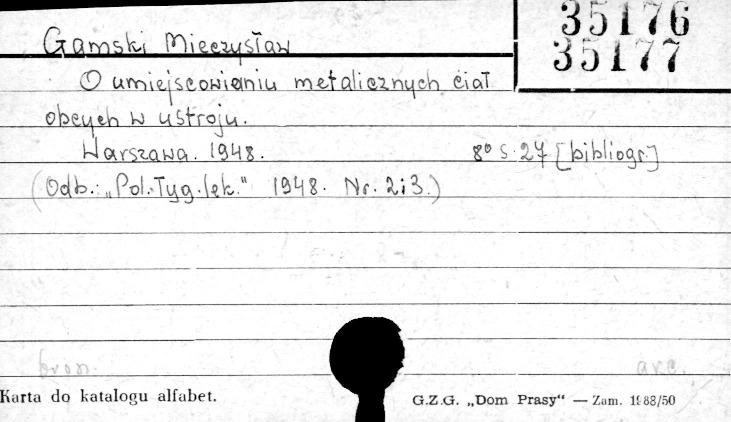 35176
35177
Gamski Mieczysław
O umiejscowianiu metalicznych ciał
obcych w ustroju.
Warszawa. 1948. 8° s. 27 [bibliogr.]
(Odb.: „Pol. Tyg. lek." 1948. Nr. 2i3.)
brosz.
Karta do katalogu alfabet.
G.Z.G. „Dom Prasy“ — Zam. 1988/50